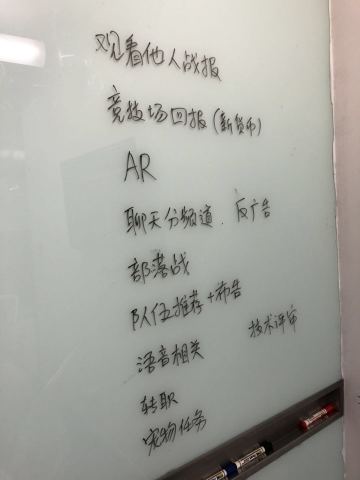 观看他人战报
竞技场回报(新货币)
AR
聊天分频道、反广告
部落战
队伍推荐+布告
语音相关
技术评审
转职
宠物任务